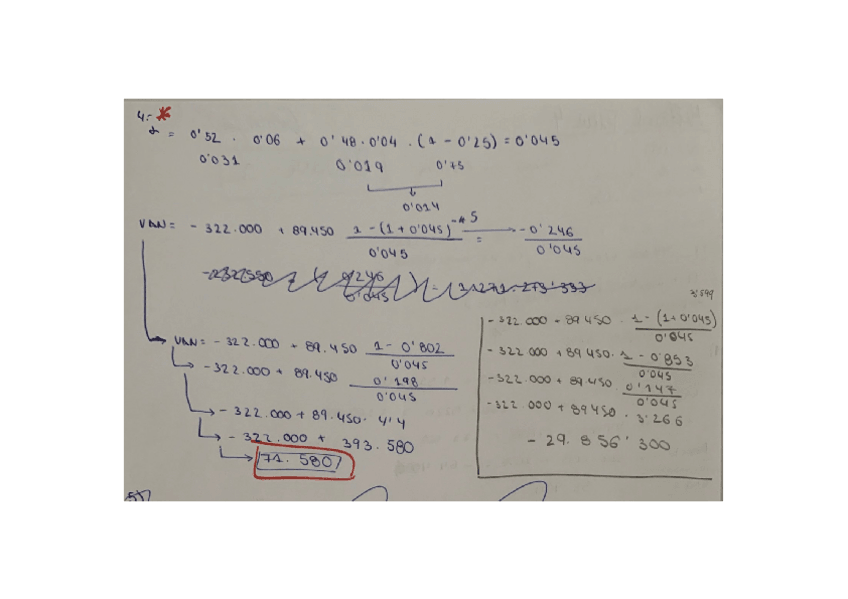 4:- *
r = 0'52 . 0'06 + 0'48 . 0'04 . (1 - 0'25) = 0'045
0'031 0'019 0'75
0'014
VAN = - 322.000 + 89.450 1 - (1 + 0'045)^-5 / 0'045 = - 0'246 / 0'045
VAN = - 322.000 + 89.450 1 - 0'802 / 0'045
- 322.000 + 89.450 0'198 / 0'045
- 322.000 + 89.450 . 4'4
- 322.000 + 393.580
71.580
5)
3'599
- 322.000 + 89.450 . 1 - (1 + 0'045) / 0'045
- 322.000 + 89.450 . 1 - 0'853 / 0'045
- 322.000 + 89.450 . 0'147 / 0'045
- 322.000 + 89.450 . 3'266
- 29.856'300